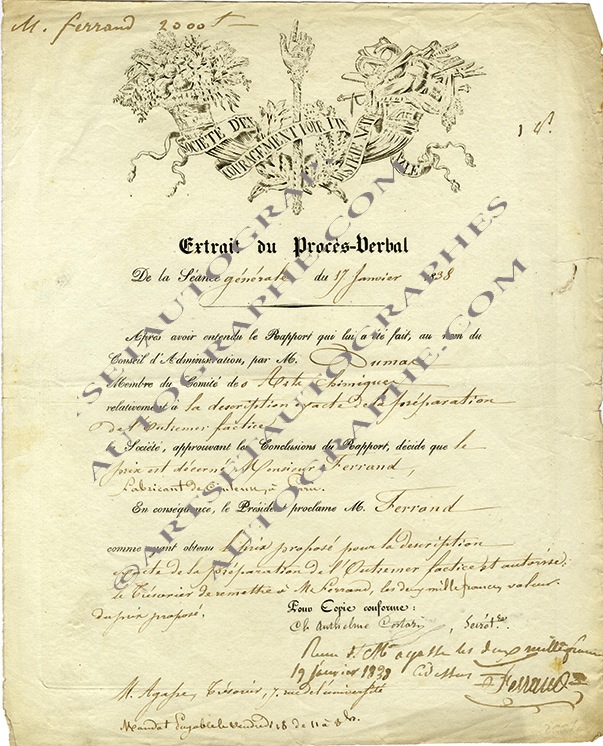 M. Ferrand 2000 f
SOCIÉTÉ D'EN
COURAGEMENT POUR L'IN
DUSTRIE NATIO
NALE
Extrait du Procès-Verbal
De la Séance générale du 17 Janvier 1838
Après avoir entendu le Rapport qui lui a été fait, au nom du
Conseil d'Administration, par M. Dumas
Membre du Comité des Arts Chimiques
relativement à la description exacte de la préparation
de l'Outremer factice
la Société, approuvant les Conclusions du Rapport, décide que le
prix est décerné à Monsieur Ferrand,
fabricant de couleurs, à Paris.
En conséquence, le Président proclame M. Ferrand
comme ayant obtenu le prix proposé pour la description
exacte de la préparation de l'Outremer factice et autorise
le Trésorier de remettre à M. Ferrand, les deux mille francs, valeur
du prix proposé.
Pour Copie conforme :
Secrét.
Reçu de M. Agasse les deux mille francs
19 janvier 1838 ci dessus
Ferrand
M. Agasse, Trésorier, 7, rue de l'université
Mandat payable le vendredi 18 de 11 à 3 h.
©ARTSETAUTOGRAPHES
AUTOGRAPHE.COM
ARTSETAUTOGRAPHES
AUTOGRAPHE.COM